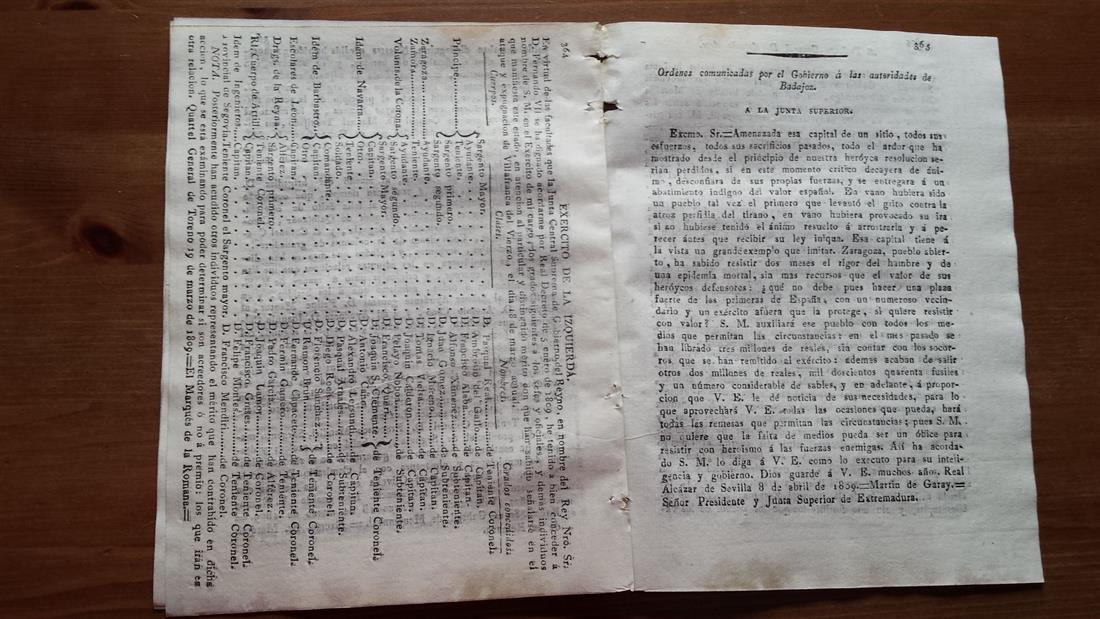 364
EXERCITO DE LA IZQUIERDA.
En virtud de las facultades que la Junta Central Suprema de Gobierno del Reyno, en nombre del Rey Nro. Sr.
D. Fernando VII. se ha dignado acordarme por Real Decreto de 5 enero de 1809, he tenido a bien conceder á
nombre de S. M. en el Exercito de mi cargo, los grados siguientes á los xefes y oficiales, y demas individuos
que manifiesta este estado, en atencion al particular y distinguido mérito con que han sabido señalarse en el
ataque y expugnacion de Villafranca del Vierzo, el dia 18 de marzo actual.
Cuerpos. Clases. Nombres. Grados concedidos.
Príncipe
Sargento Mayor. D. Pasqual Real de Teniente Coronel.
Ayudante. D. Ambrosio del Gallo de Capitan.
Teniente. D. Francisco de Capitan.
Sargento primero. D. Alfonso Ximenez de Subteniente.
Sargento segundo. D. de Subteniente.
Zaragoza Ayudante. D. Ignacio Moreno de Capitan.
Zamora Teniente. D. Tomas de Capitan.
Volunts. de la Corona
Ayudante. D. Joaquin Calderon de Capitan.
Sargento segundo. D. Pelayo de Subteniente.
Idem de Navarra
Sargento Mayor. D. Francisco
Capitan. D. Joaquin S. Clemente de Teniente Coronel.
Otro. D. Antonio
Teniente. D. Alexandro de Capitan.
Soldado. D. Pasqual de Subteniente.
Idem de Barbastro
Comandante. D. Diego de Coronel.
Capitan. D. Florencio
Otro D. Ramon de Teniente Coronel.
Escolares de Leon Capitan. D. Fermin de Teniente Coronel.
Drags. de la Reyna
Alférez. D. de Teniente.
Sargento primero. D. Pedro Garcia de Alférez.
Rl. Cuerpo de Artill.
Teniente Coronel. D. Joaquin de Coronel.
Capitan. D. Francisco de Teniente Coronel.
Idem de Ingenieros Capitan. D. Felipe Montes de Teniente Coronel.
Provincial de Segovia Teniente Coronel el Sargento mayor. D. Francisco Mendiri de Coronel.
NOTA. Posteriormente han acudido otros individuos representando el mérito que han contrahido en dicha
accion, lo que se está exâminando para poder determinar si son acreedores ó no á premio: los que irán en
otra relacion. Quartel General de Toreno 19 de marzo de 1809.=El Marqués de la Romana.=
365
Ordenes comunicadas por el Gobierno á las autoridades de
Badajoz.
A LA JUNTA SUPERIOR.
Excmo. Sr.=Amenazada esa capital de un sitio, todos sus
esfuerzos, todos sus sacrificios pasados, todo el ardor que ha
mostrado desde el principio de nuestra heróyca resolucion se-
rian perdidos, si en este momento critico decayera de áni-
mo, desconfiara de sus propias fuerzas, y se entregara á un
abatimiento indigno del valor español. En vano hubiera sido
un pueblo tal vez el primero que levantó el grito contra la
atroz perfidia del tirano, en vano hubiera provocado su ira
si no hubiese tenido el ánimo resuelto á arrostrarla y á pe-
recer ántes que recibir su ley iniqua. Esa capital tiene á
la vista un grande exemplo que imitar. Zaragoza, pueblo abier-
to, ha sabido resistir dos meses el rigor del hambre y de
una epidemia mortal, sin mas recursos que el valor de sus
heróycos defensores: ¿qué no debe pues hacer una plaza
fuerte de las primeras de España, con un numeroso vecin-
dario y un exército afuera que la protege, si quiere resistir
con valor? S. M. auxiliará ese pueblo con todos los me-
dios que permitan las circunstancias: en el mes pasado se
han librado tres millones de reales, sin contar con los socor-
ros que se han remitido al exército: ademas acaban de salir
otros dos millones de reales, mil doscientos quarenta fusiles
y un número considerable de sables, y en adelante, á propor-
cion que V. E. le dé noticia de sus necesidades, para lo
que aprovechará V. E. todas las ocasiones que pueda, hará
todas las remesas que permitan las circunstancias; pues S. M.
no quiere que la falta de medios pueda ser un óbice para
resistir con heroismo á las fuerzas enemigas. Así ha acorda-
do S. M. lo diga á V. E. como lo executo para su inteli-
gencia y gobierno. Dios guarde á V. E. muchos años. Real
Alcázar de Sevilla 8 de abril de 1809.=Martin de Garay.=
Señor Presidente y Junta Superior de Extremadura.